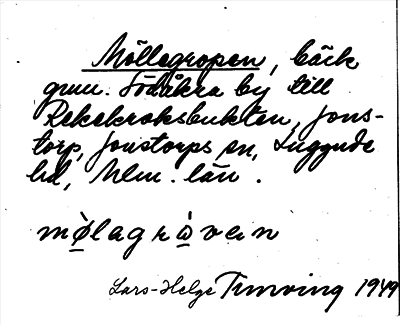 Möllegropen, bäck
gnm. Södåkra by till
Rekekroksbukten, Jons-
torp, Jonstorps sn, Luggude
hd, Mlm. län.
mølagràvein
Lars-Helge Turning 1949